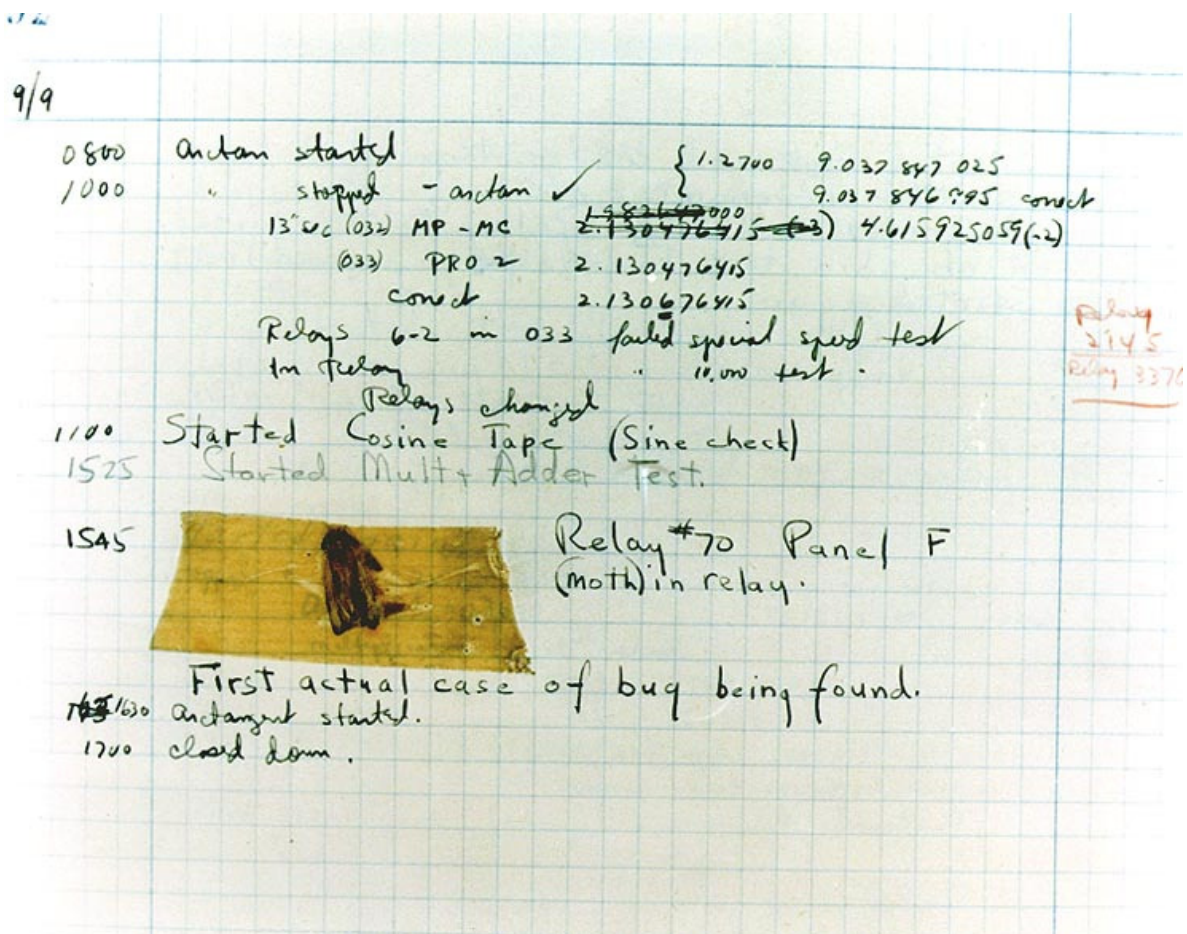 9/9
0800 arctan started { 1.2700 9.037 847 025
1000 " stopped - arctan ✓ 9.037 846 995 correct
13"sec (032) MP - MC 2.130476415 (-3) 4.615925059(-2)
(033) PRO 2 2.130476415
correct 2.130676415
Relays 6-2 in 033 failed special speed test
In Relay " 10,000 test.
Relay
2145
Relay 3370
Relays changed
1100 Started Cosine Tape (Sine check)
1525 Started Mult + Adder Test.
1545 Relay #70 Panel F
(moth) in relay.
First actual case of bug being found.
1630 arctangent started.
1700 closed down.